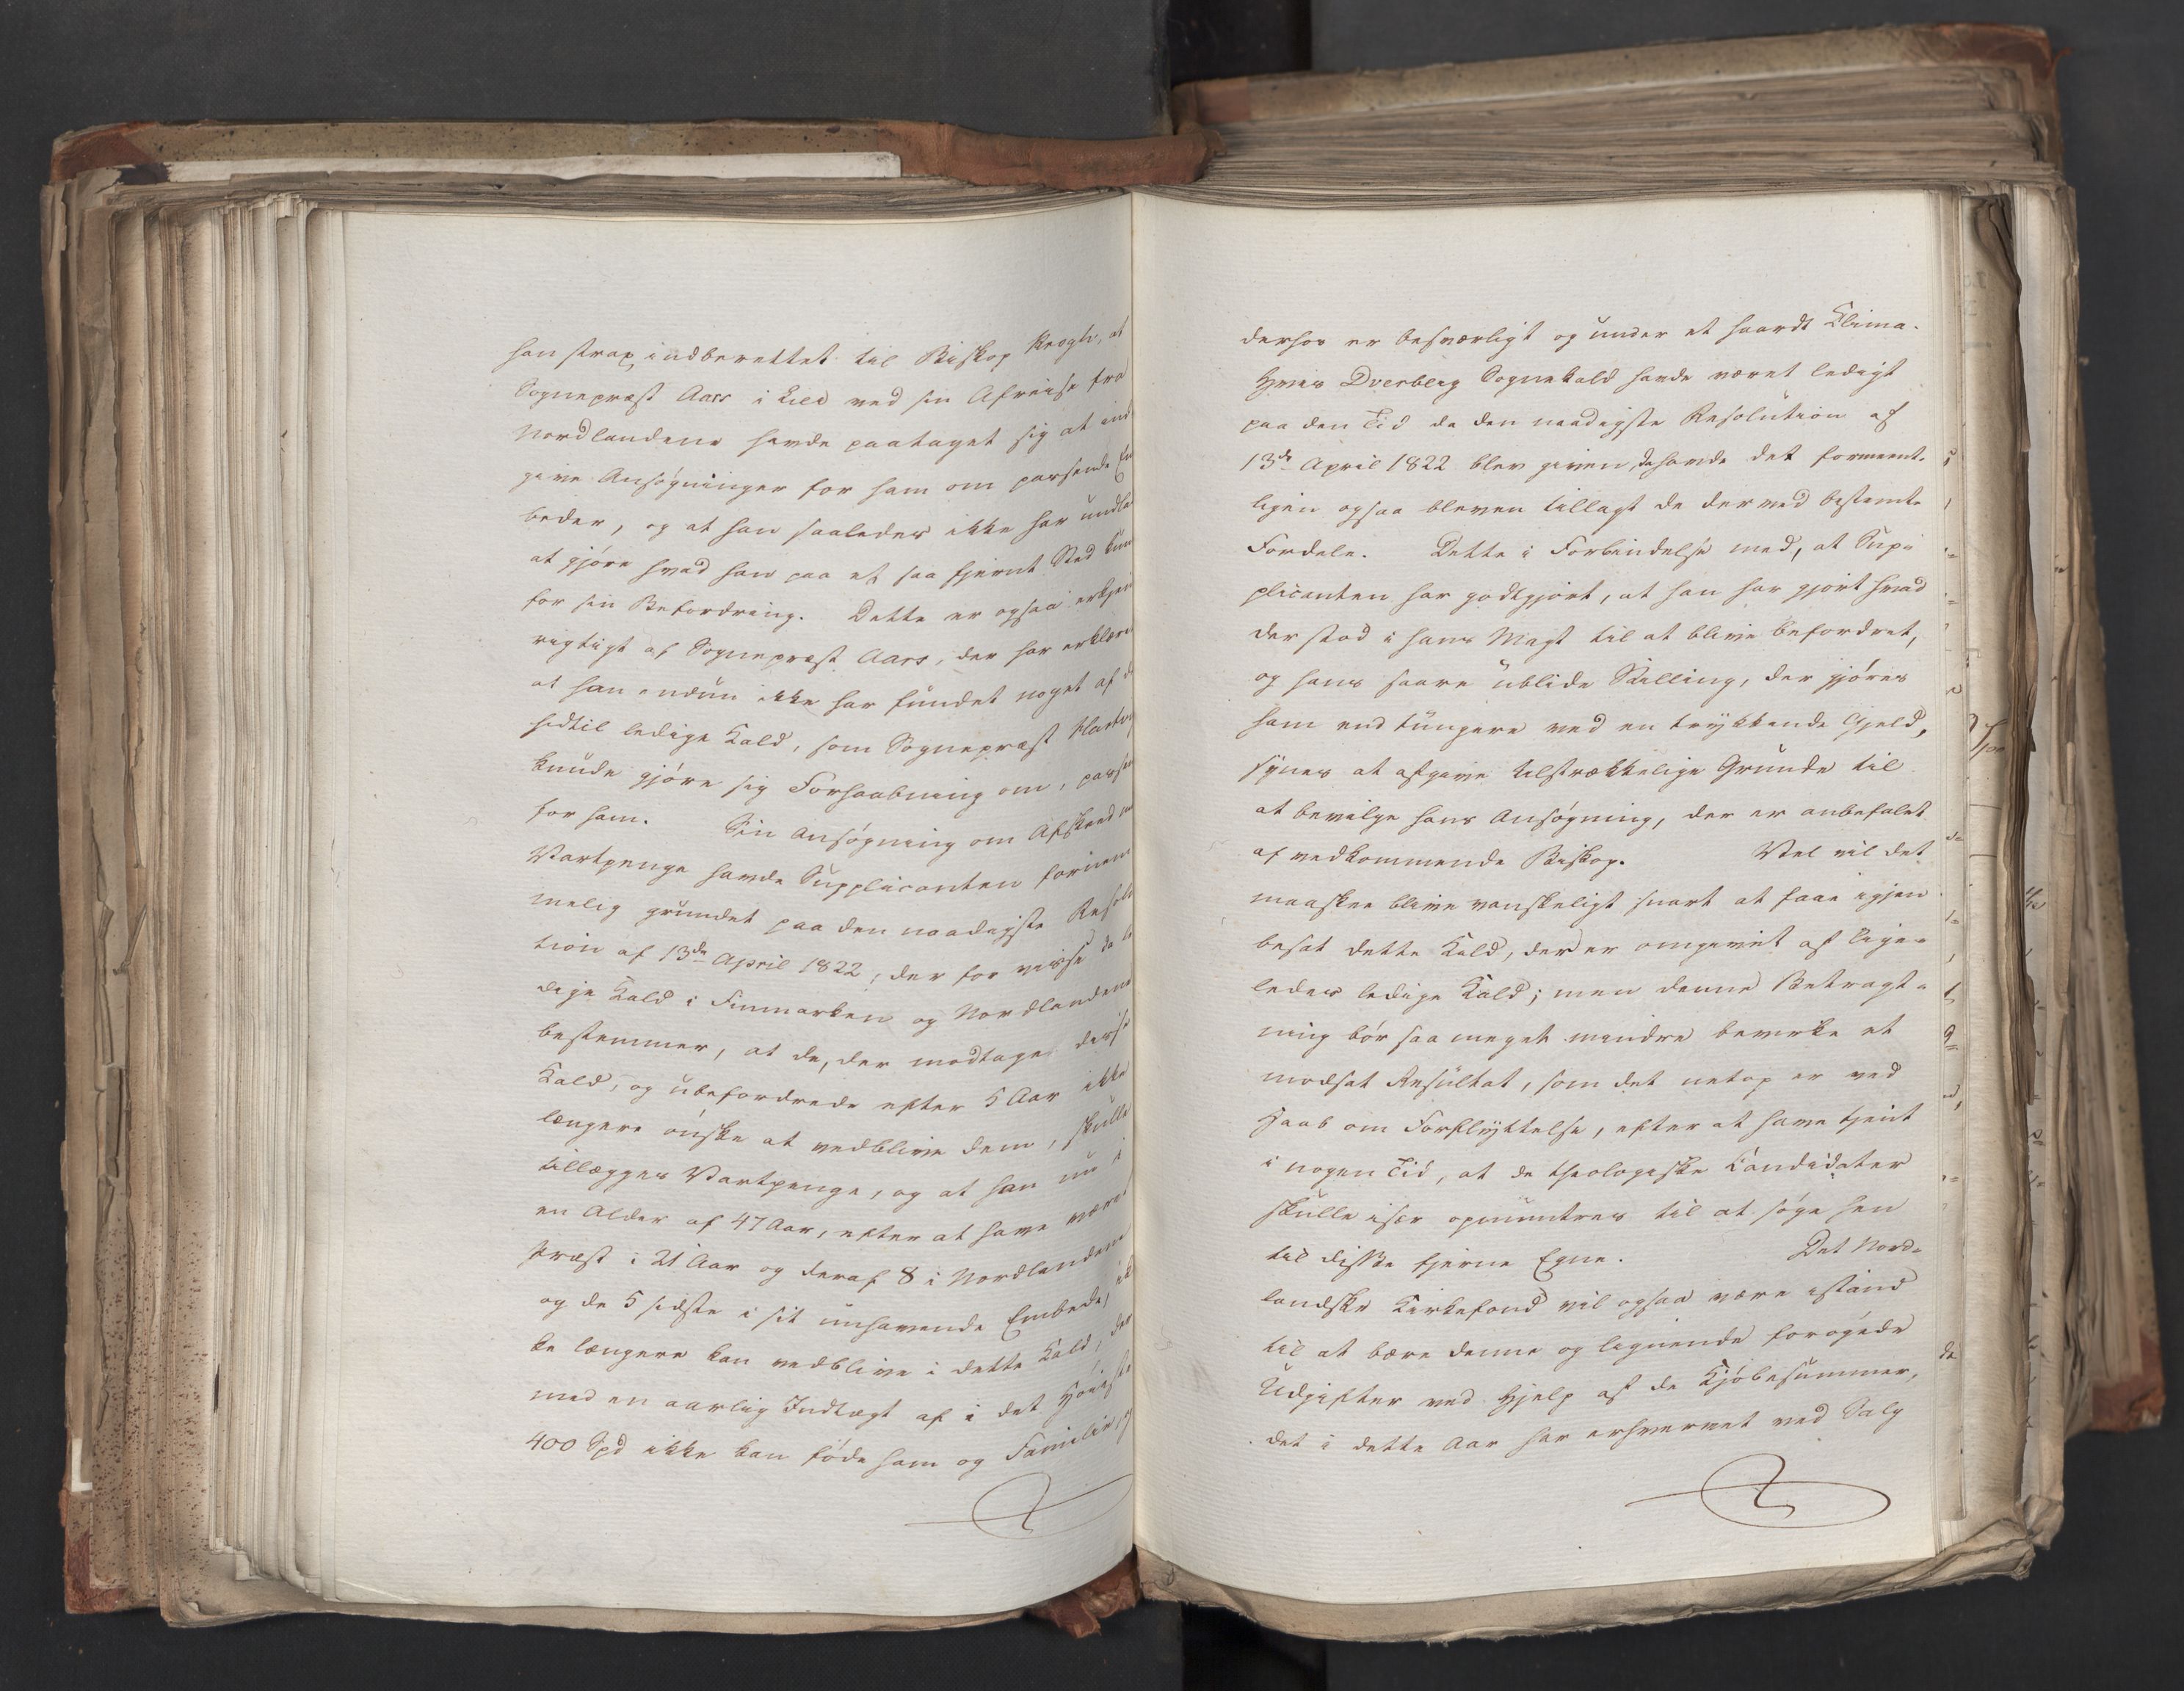 han strax indberettet til Biskop Krogh, at
Sognepræst Aars i Lier ved sin Afreise fra
Nordlandene havde paataget sig at ind
give Ansøgninger for ham om passende Em
beder, og at han saaledes ikke har undlad
at gjøre hvad han paa et saa fjernt Sted kun
for sin Befordring. Dette er ogsaa erkjen
rigtigt af Sognepræst Aars, der har erklære
at han endnu ikke har fundet noget af de
hidtil ledige Kald, som Sognepræst Hartvig
kunde gjøre sig Forhaabning om, passen
for ham. Sin Ansøgning om Afskeed
Vartpenge havde Supplicanten fornem
melig grundet paa den naadigste Resolu
tion af 13de April 1822, der for visse da le
dige Kald i Finmarken og Nordlandene
bestemmer, at de, der modtage disse
Kald, og ubefordrede efter 5 Aar ikke
længere ønske at vedblive dem, skulle
tillægges Vartpenge, og at han nu i
en Alder af 47 Aar, efter at have været
Præst i 21 Aar og deraf 8 i Nordlandene
og de 5 sidste i sit unhavende Embede, ik
ke længere kan vedblive i dette Kald, der
med en aarlig Indtægt af i det Høieste
400 Spd ikke kan føde ham og Familie, og
derhos er besværligt og under et haardt Clima.
Hvis Dverberg Sognekald havde været ledigt
paa den Tid da den naadigste Resolution af
13de April 1822 blev given, da havde det formeent-
ligen ogsaa bleven tillagt de derved bestemte
Fordele. Dette i Forbindelse med, at Sup-
plicanten har godtgjort, at han har gjort hvad
der stod i hans Magt til at blive befordret,
og hans saare ublide Stilling, der gjøres
ham end tungere ved en trykkende Gjeld,
synes at afgive tilstrækkelige Grunde til
at bevilge hans Ansøgning, der er anbefalet
af vedkommende Biskop. Vel vil det
maaskee blive vanskeligt snart at faae igjen
besat dette Kald, der er omgivet af lige-
ledes ledige Kald; men denne Betragt-
ning bør saa meget mindre bevirke et
modsat Resultat, som det netop er ved
Haab om Forflyttelse, efter at have tjent
i nogen Tid, at de theologiske Candidater
skulle især opmuntres til at søge hen
til disse fjerne Egne. Det Nord-
landske Kirkefond vil ogsaa være istand
til at bære denne og lignende forøgede
Udgifter ved Hjelp af de Kjøbesummer,
det i dette Aar har erhvervet ved Salg